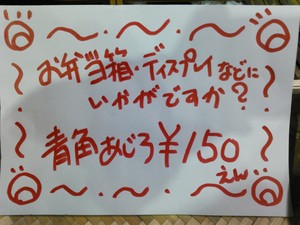 お弁当箱・ディスプレイなどに
いかがですか?
青角あじろ¥150
えん